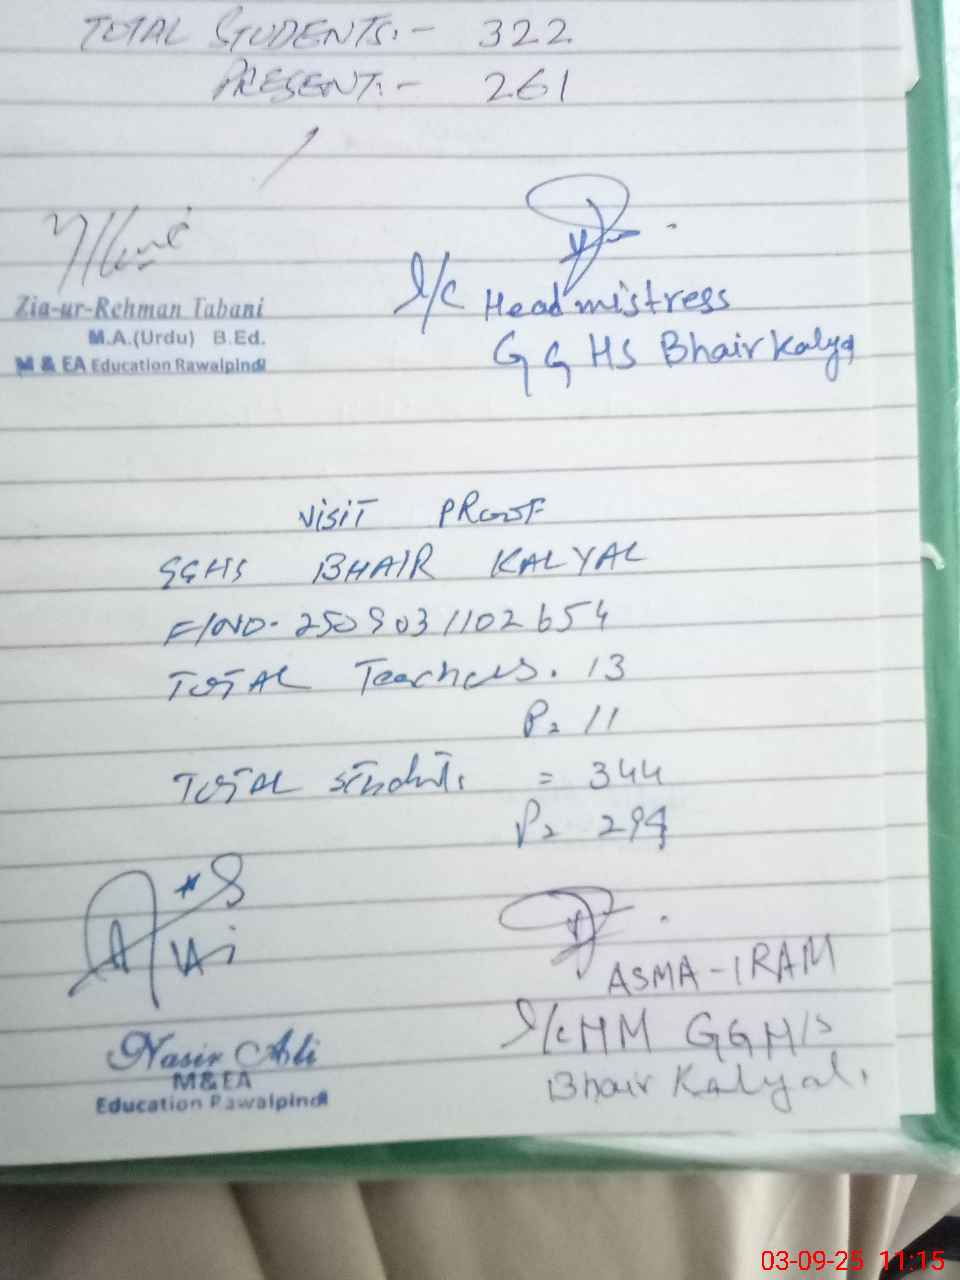 TOTAL STUDENTS:- 322
PRESENT:- 261
Zia-ur-Rehman Tabani
M.A.(Urdu) B.Ed.
M & EA Education Rawalpindi
I/C Headmistress
G G HS Bhair Kalyal
VISIT PROOF
GGHS BHAIR KALYAL
F/NO- 2509031102654
TOTAL Teachers. 13
P= 11
TOTAL students = 344
P= 294
Nasir Ali
M&EA
Education Rawalpindi
ASMA-IRAM
I/C HM GGH/S
Bhair Kalyal.
03-09-25 11:15